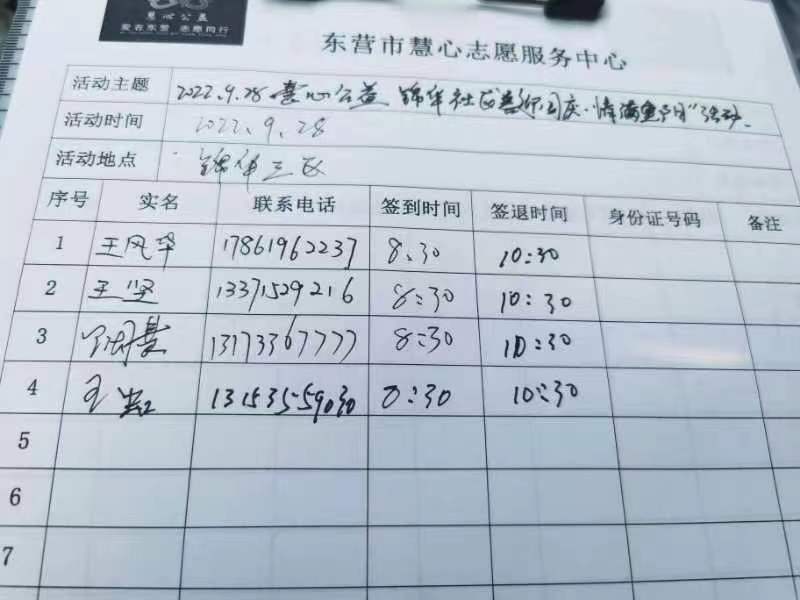 慧心公益
爱者东营 志愿同行
东营市慧心志愿服务中心
活动主题 2022.9.28 慧心公益 锦华社区喜迎国庆·情满重阳"活动.
活动时间 2022.9.28
活动地点 锦华三区
序号 实名 联系电话 签到时间 签退时间 身份证号码 备注
1 王风华 17861962237 8:30 10:30
2 王坚 13371529216 8:30 10:30
3 13173367777 8:30 10:30
4 王 13153559030 8:30 10:30
5
6
7